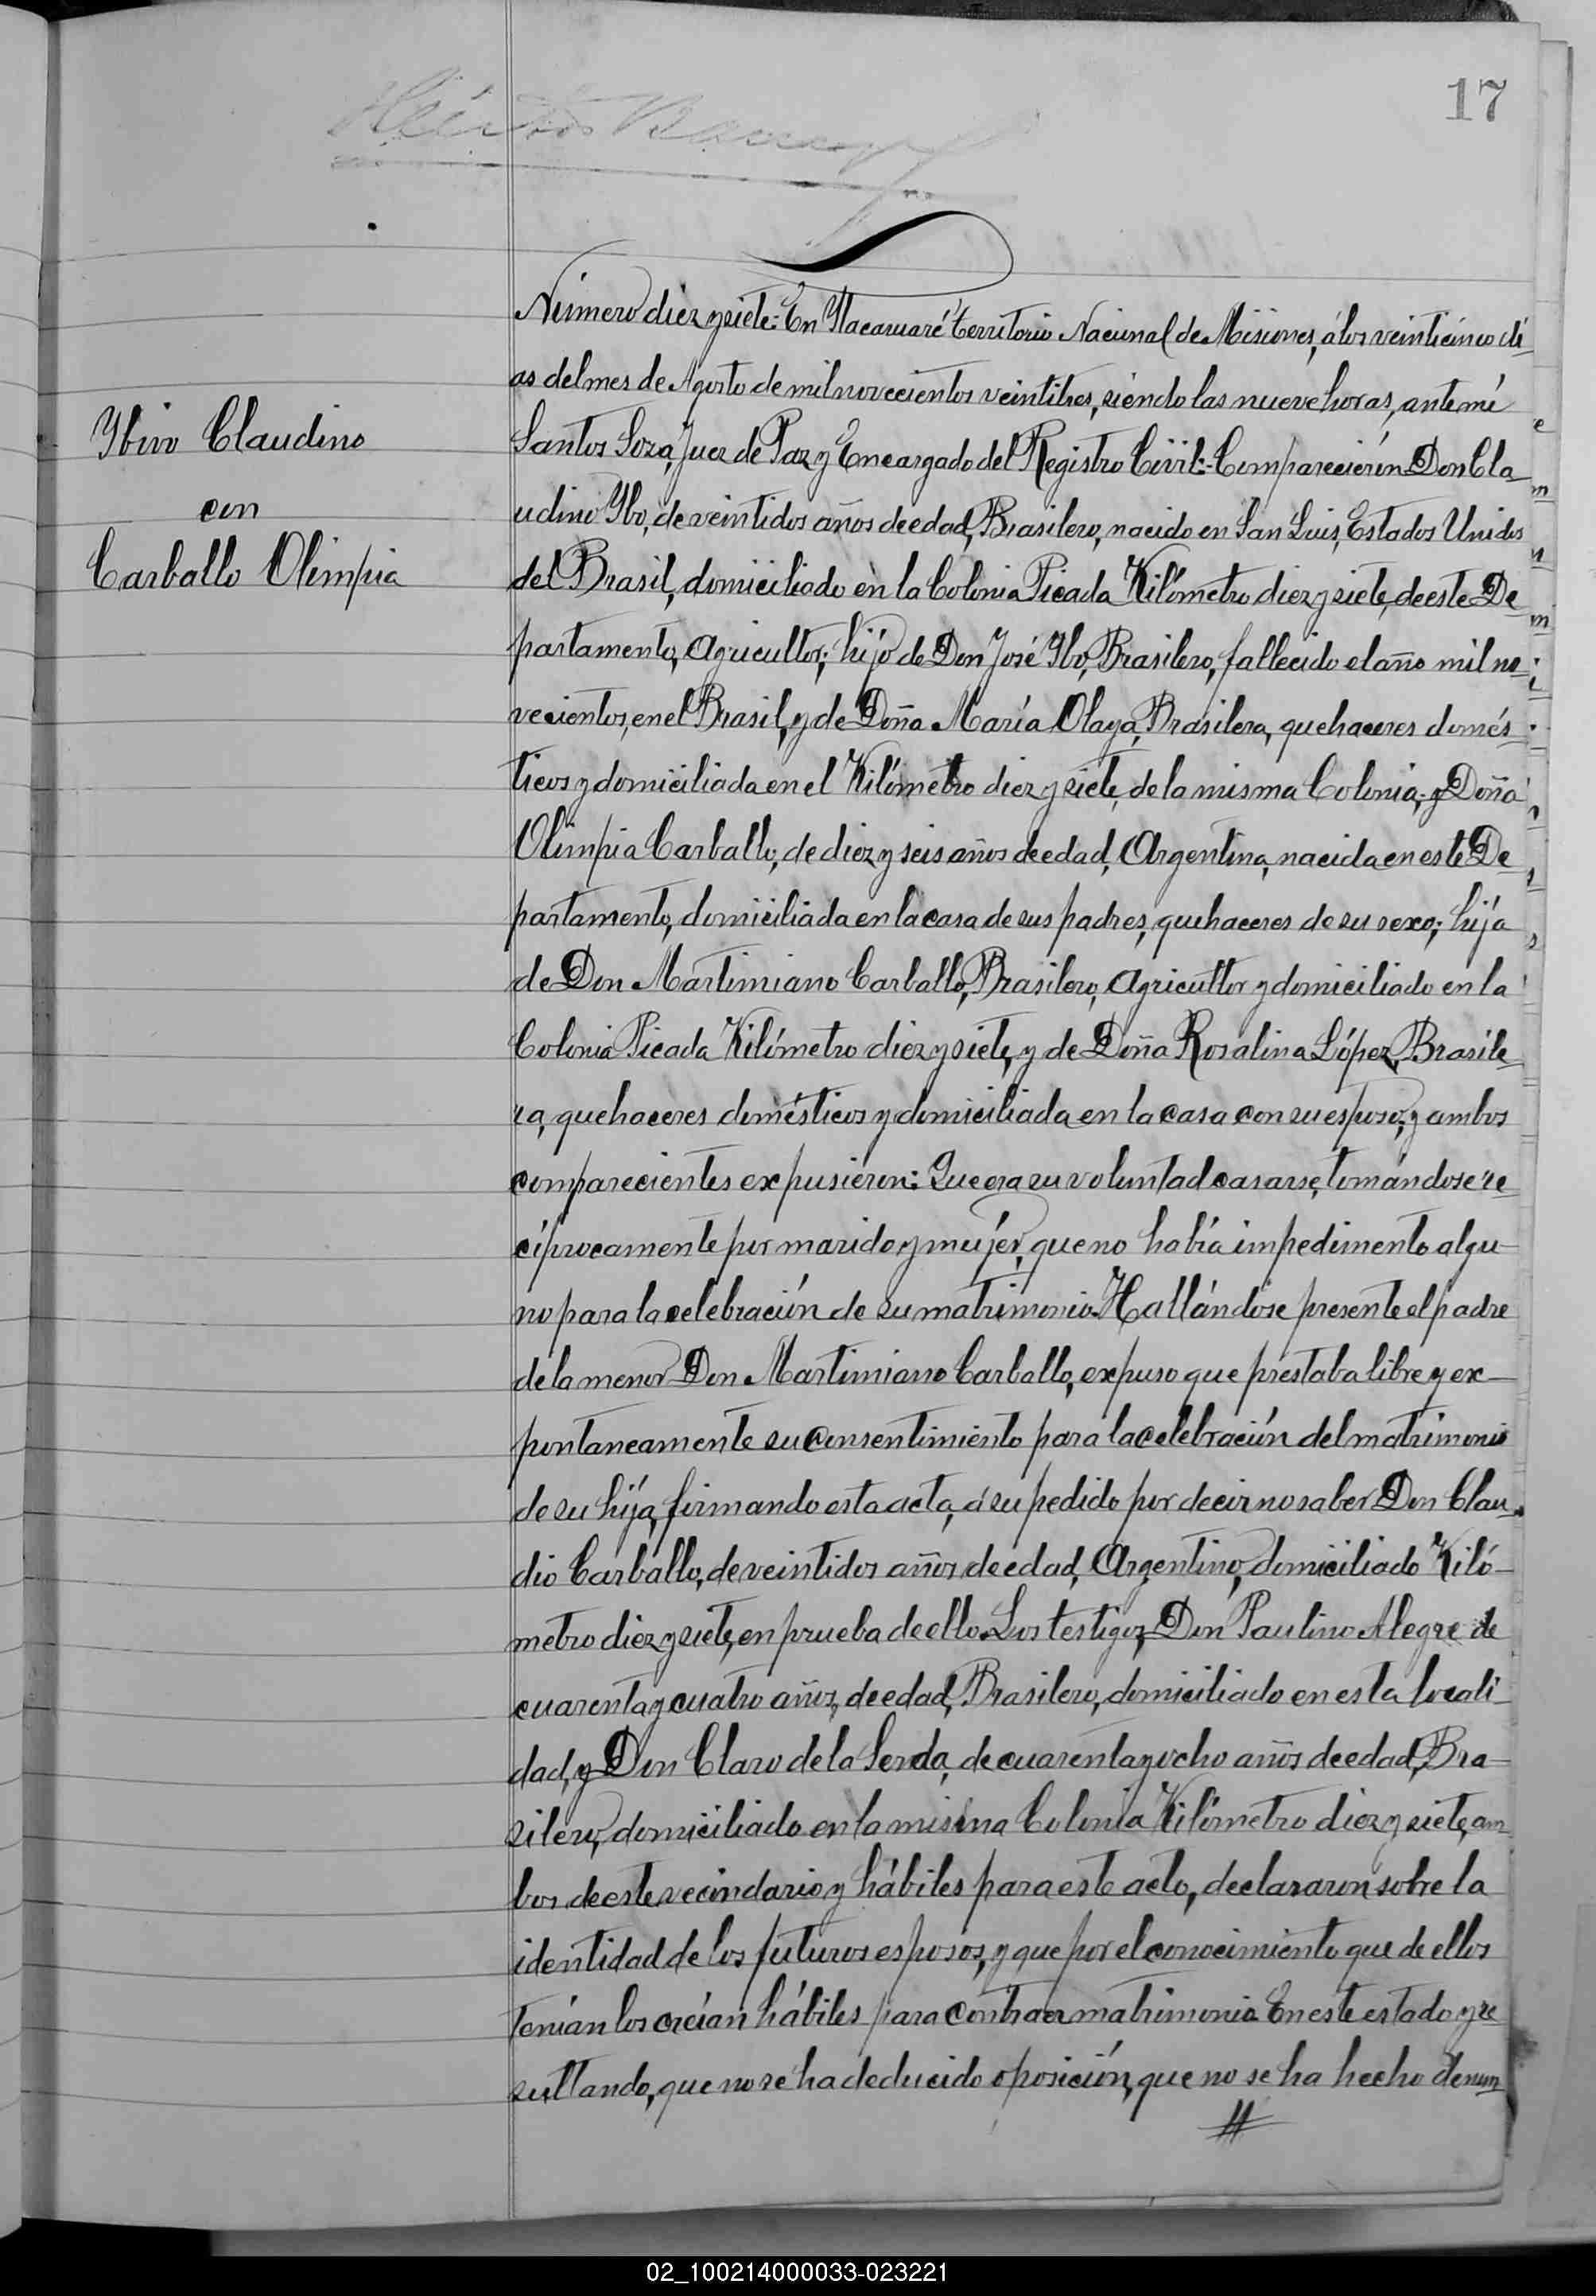 17
Número diez y siete: En Itacaruaré territorio Nacional de Misiones, á los veinticinco dí-
as del mes de Agosto de mil novecientos veintitres, siendo las nueve horas, ante mí
Ybiro Claudino
con
Carballo Olimpia
Santos Soza, Juez de Paz y Encargado del Registro Civil:- Comparecierón Don Cla-
udino Ybo, de veintidos años de edad, Brasilero, nacido en San Luis, Estados Unidos
del Brasil, domiciliado en la Colonia Picada Kilómetro diez y siete, de este De-
partamento, Agricultor; hijo de Don José Ybo, Brasilero, fallecido el año mil no-
vecientos, en el Brasil, y de Doña María Olaya, Brasilera, quehaceres domés-
ticos y domiciliada en el Kilómetro diez y siete, de la misma Colonia, y Doña
Olimpia Carballo, de diez y seis años de edad, Argentina, nacida en este De-
partamento, domiciliada en la casa de sus padres, quehaceres de su sexo; hija
de Don Martimiano Carballo, Brasilero, Agricultor y domiciliado en la
Colonia Picada Kilómetro diez y siete, y de Doña Rosalina López, Brasile-
ra, quehaceres domésticos y domiciliada en la casa con su esposo; y ambos
comparecientes expusieron: Que era su voluntad casarse, tomándose re-
cíprocamente por marido y mujer, que no había impedimento algu-
no para la celebración de su matrimonio. Hallándose presente el padre
de la menor Don Martimiano Carballo, expuso que prestaba libre y ex-
pontaneamente su consentimiento para la celebración del matrimonio
de su hija, firmando esta acta, á su pedido por decir no saber Don Clau-
dio Carballo, de veintidos años de edad, Argentino, domiciliado Kiló-
metro diez y siete, en prueba de ello. Los testigos, Don Paulino Alegre de
cuarenta y cuatro años, de edad, Brasilero, domiciliado en esta locali-
dad, y Don Claro de la Serda, de cuarenta y ocho años de edad, Bra-
silero, domiciliado en la misma Colonia Kilómetro diez y siete, am-
bos de este vecindario y hábiles para este acto, declararon sobre la
identidad de los futuros esposos, y que por el conocimiento que de ellos
tenían los creían hábiles para contraer matrimonio. En este estado y re-
sultando, que no se ha deducido oposición, que no se ha hecho denun-
02_100214000033-023221